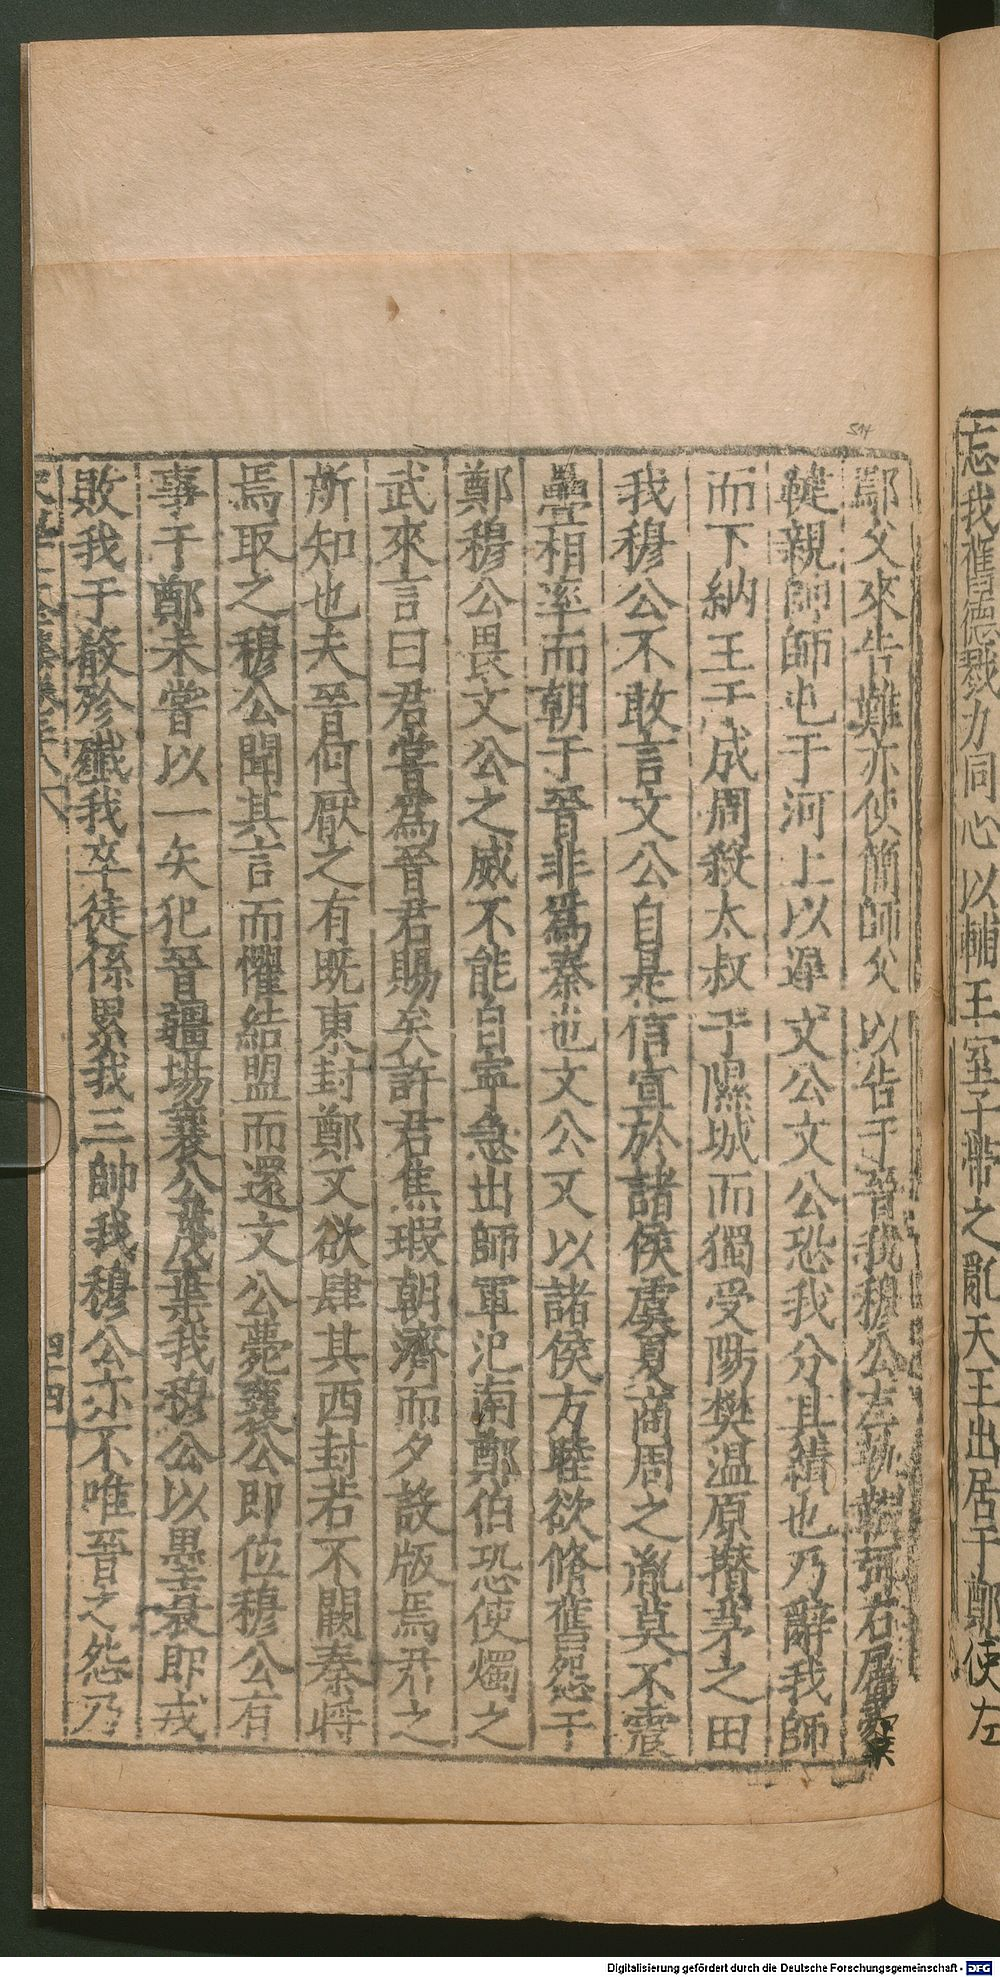 忘我舊德戮力同心以輔王室子帶之亂天王出居于鄭使左
鄢父來告難亦使簡師父以告于晉我穆公左執鞭弭右屬櫜
鞬親帥師屯于河上以遲文公文公恐我分其績也乃辭我師
而下納王于成周殺太叔于隰城而獨受陽樊温原攢茅之田
我穆公不敢言文公自是信宣於諸侯虞夏商周之胤莫不震
疊相率而朝于晉非爲秦也文公又以諸侯方睦欲脩舊怨于
鄭穆公畏文公之威不能自寧急出師軍汜南鄭伯恐使燭之
武來言曰君嘗爲晉君賜矣許君焦瑕朝濟而夕設版焉君之
所知也夫晉何厭之有既東封鄭又欲肆其西封若不闕秦將
焉取之穆公聞其言而懼結盟而還文公薨襄公即位穆公有
事于鄭未嘗以一矢犯晉疆場襄公蔑棄我穆公以墨衰即戎
敗我于殽殄殲我卒徒係累我三帥我穆公亦不唯晉之怨乃
四四
517
Digitalisierung gefördert durch die Deutsche Forschungsgemeinschaft - DFG